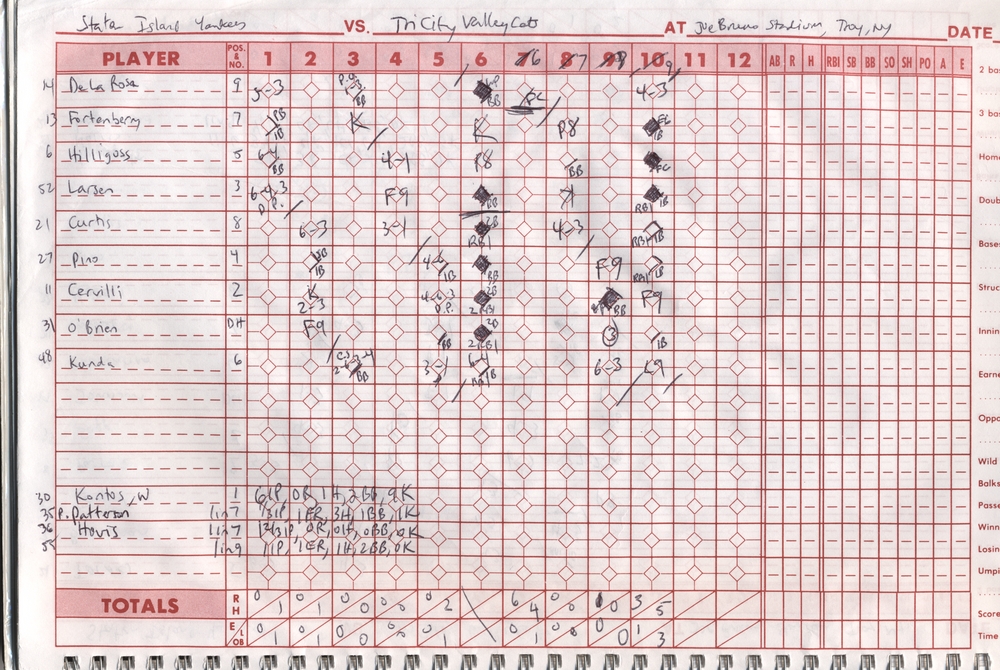 Stata Island Yankees VS. TriCity ValleyCats AT Joe Bruno Stadium, Troy, NY DATE
PLAYER POS. & NO. 1 2 3 4 5 6 6 7 8 9 11 12 AB R H RBI SB BB SO SH PO A E
14 De La Rosa 9 5-3 BB BB FC 4-3
13 Fortenberry 7 1B K K F8 E6 1B
6 Hilligoss 5 6-4 BB 4-1 F8 BB FC
52 Larsen 3 6-4-3 D.P. F9 BB K RBI 1B
21 Curtis 8 6-3 3-1 2B RBI 4-3 RBI 1B
27 Pino 4 1B 1B BB F9 RBI 1B
11 Cervilli 2 K 2-3 4-6-3 D.P. 2B 2RBI BB F9
31 O'Brien DH F9 BB 2B 2RBI 3 1B
48 Kunda 6 BB 3-1 6-4 6-3 F9
30 Kontos, W 1 6IP, 0R, 1H, 2BB, 9K
35 P. Patterson 1 in 7 1/3IP, 1ER, 3H, 1BB, 1K
36 Hovis 1 in 7 1 2/3IP, 0R, 0H, 0BB, 0K
55 1 in 9 1IP, 1ER, 1H, 2BB, 0K
TOTALS R H 0 1 0 1 0 0 0 0 0 2 6 4 0 0 1 0 3 5
E LOB 0 1 0 1 0 0 0 0 0 1 0 1 0 0 0 0 1 3
2 bas
3 bas
Home
Doub
Bases
Struc
Innin
Earne
Oppo
Wild
Balks
Passe
Winn
Losin
Umpi
Score
Time